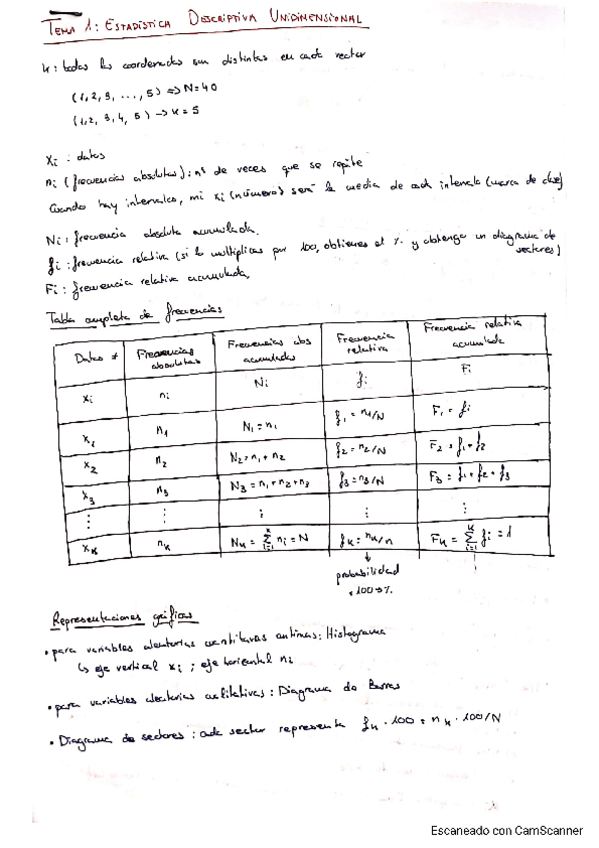 TEMA 1: ESTADÍSTICA DESCRIPTIVA UNIDIMENSIONAL
k: todas las coordenadas son distintas en cada vector
(1,2,3, ..., 5) => N=40
(1,2, 3, 4, 5) -> k = 5
Xi : datos
ni (frecuencias absolutas): nº de veces que se repite
Cuando hay intervalos, mi xi (número) será la media de cada intervalo (marca de clase)
Ni: frecuencia absoluta acumulada.
fi : frecuencia relativa (si lo multiplicas por 100, obtienes el % y obtengo un diagrama de sectores)
Fi : frecuencia relativa acumulada.
Tabla completa de frecuencias
Datos ≠ | Frecuencias absolutas | Frecuencias abs acumuladas | Frecuencia relativa | Frecuencia relativa acumulada
xi | ni | Ni | fi | Fi
x1 | n1 | N1 = n1 | f1 = n1/N | F1 = f1
x2 | n2 | N2 = n1 + n2 | f2 = n2/N | F2 = f1 + f2
x3 | n3 | N3 = n1 + n2 + n3 | f3 = n3/N | F3 = f1 + f2 + f3
⋮ | ⋮ | ⋮ | ⋮ | ⋮
xk | nk | Nk = Σ ni = N | fk = nk/n | Fk = Σ fi = 1
↓
probabilidad
· 100 => %
Representaciones gráficas
• para variables aleatorias cuantitativas continuas: Histograma
↳ eje vertical xi ; eje horizontal ni
• para variables aleatorias cualitativas : Diagrama de Barras
• Diagrama de sectores : cada sector representa fk · 100 = nk · 100/N
Escaneado con CamScanner